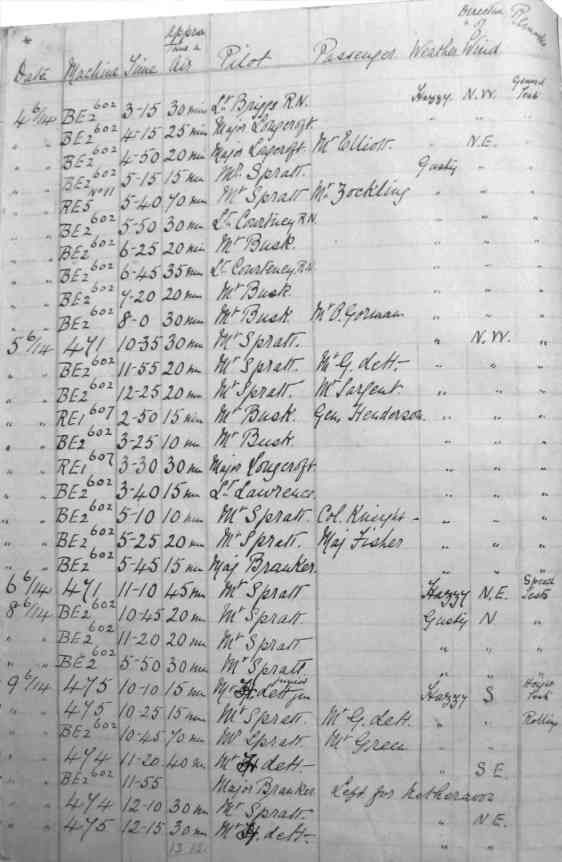 Direction
Approx of Remarks
Date Machine Time Time in Air Pilot Passenger Weather Wind
4 6/14 BE2 602 3-15 30 min Lt Briggs R.N. Hazzy. N.W. General Test
" " BE2 602 4-15 25 min Major Longcroft. " " "
" " BE2 602 4-50 20 min Major Longcroft. Mr Elliott. " N.E. "
" " BE2 602 5-15 15 min Mr. Spratt. Gusty " "
" " RE5 No 11 5-40 70 min Mr Spratt Mr. Zockling " " "
" " BE2 602 5-50 30 min Lt Courtney R.N. " " "
" " BE2 602 6-25 20 min Mr Busk. " " "
" " BE2 602 6-45 35 min Lt Courtney R.N. " " "
" " BE2 602 7-20 20 min Mr Busk. " " "
" " BE2 602 8-0 30 min Mr Busk. Mr O.Gorman " " "
5 6/14 471 10-35 30 min Mr Spratt. " N.W. "
" " BE2 602 11-55 20 m Mr Spratt. Mr G. dett. " " "
" " BE2 602 12-25 20 m Mr Spratt. Mr Sargent. " " "
" " RE1 607 2-50 15 min Mr Busk. Gen Henderson. " " "
" " BE2 602 3-25 10 m Mr Busk. " " "
" " RE1 607 3-30 30 m Major Longcroft. " " "
" " BE2 602 3-40 15 m Lt Lawrence. " " "
" " BE2 602 5-10 10 m Mr Spratt. Col. Knight - " " "
" " BE2 602 5-25 20 m Mr Spratt. Maj Fisher " " "
" " BE2 602 5-45 15 m Maj Branker. " " "
6 6/14 471 11-10 45 m Mr Spratt Hazzy N.E. Speed Tests
8 6/14 BE2 602 10-45 20 m Mr Spratt. Gusty N "
" " BE2 602 11-20 20 m Mr Spratt. " " "
" " BE2 602 5-50 30 m Mr Spratt " " "
9 6/14 475 10-10 15 m Mr dett jun Hazzy S Test
" " 475 10-25 15 m Mr Spratt. Mr G. dett. " " Rolling
" " BE2 602 10-45 70 m Mr Spratt. Mr Green " "
" " 474 11-20 40 m Mr dett- " S.E.
" " BE2 602 11-55 Major Branker. Left for Netheravon
" " 474 12-10 30 m Mr Spratt. " N.E.
" " 475 12-15 30 m Mr dett- " "
12.12.